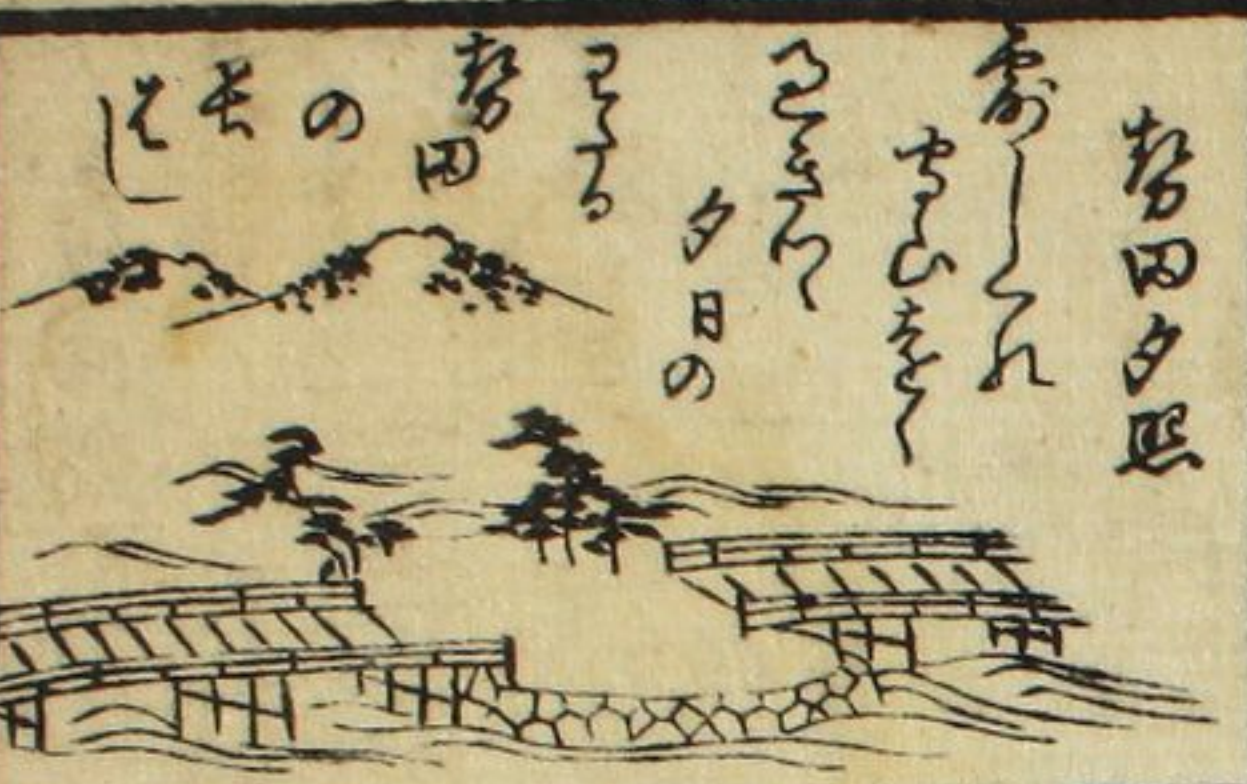 勢田夕照
露しくれ
守山遠く
過きつゝ
夕日の
わたる
勢田
の
長
はし